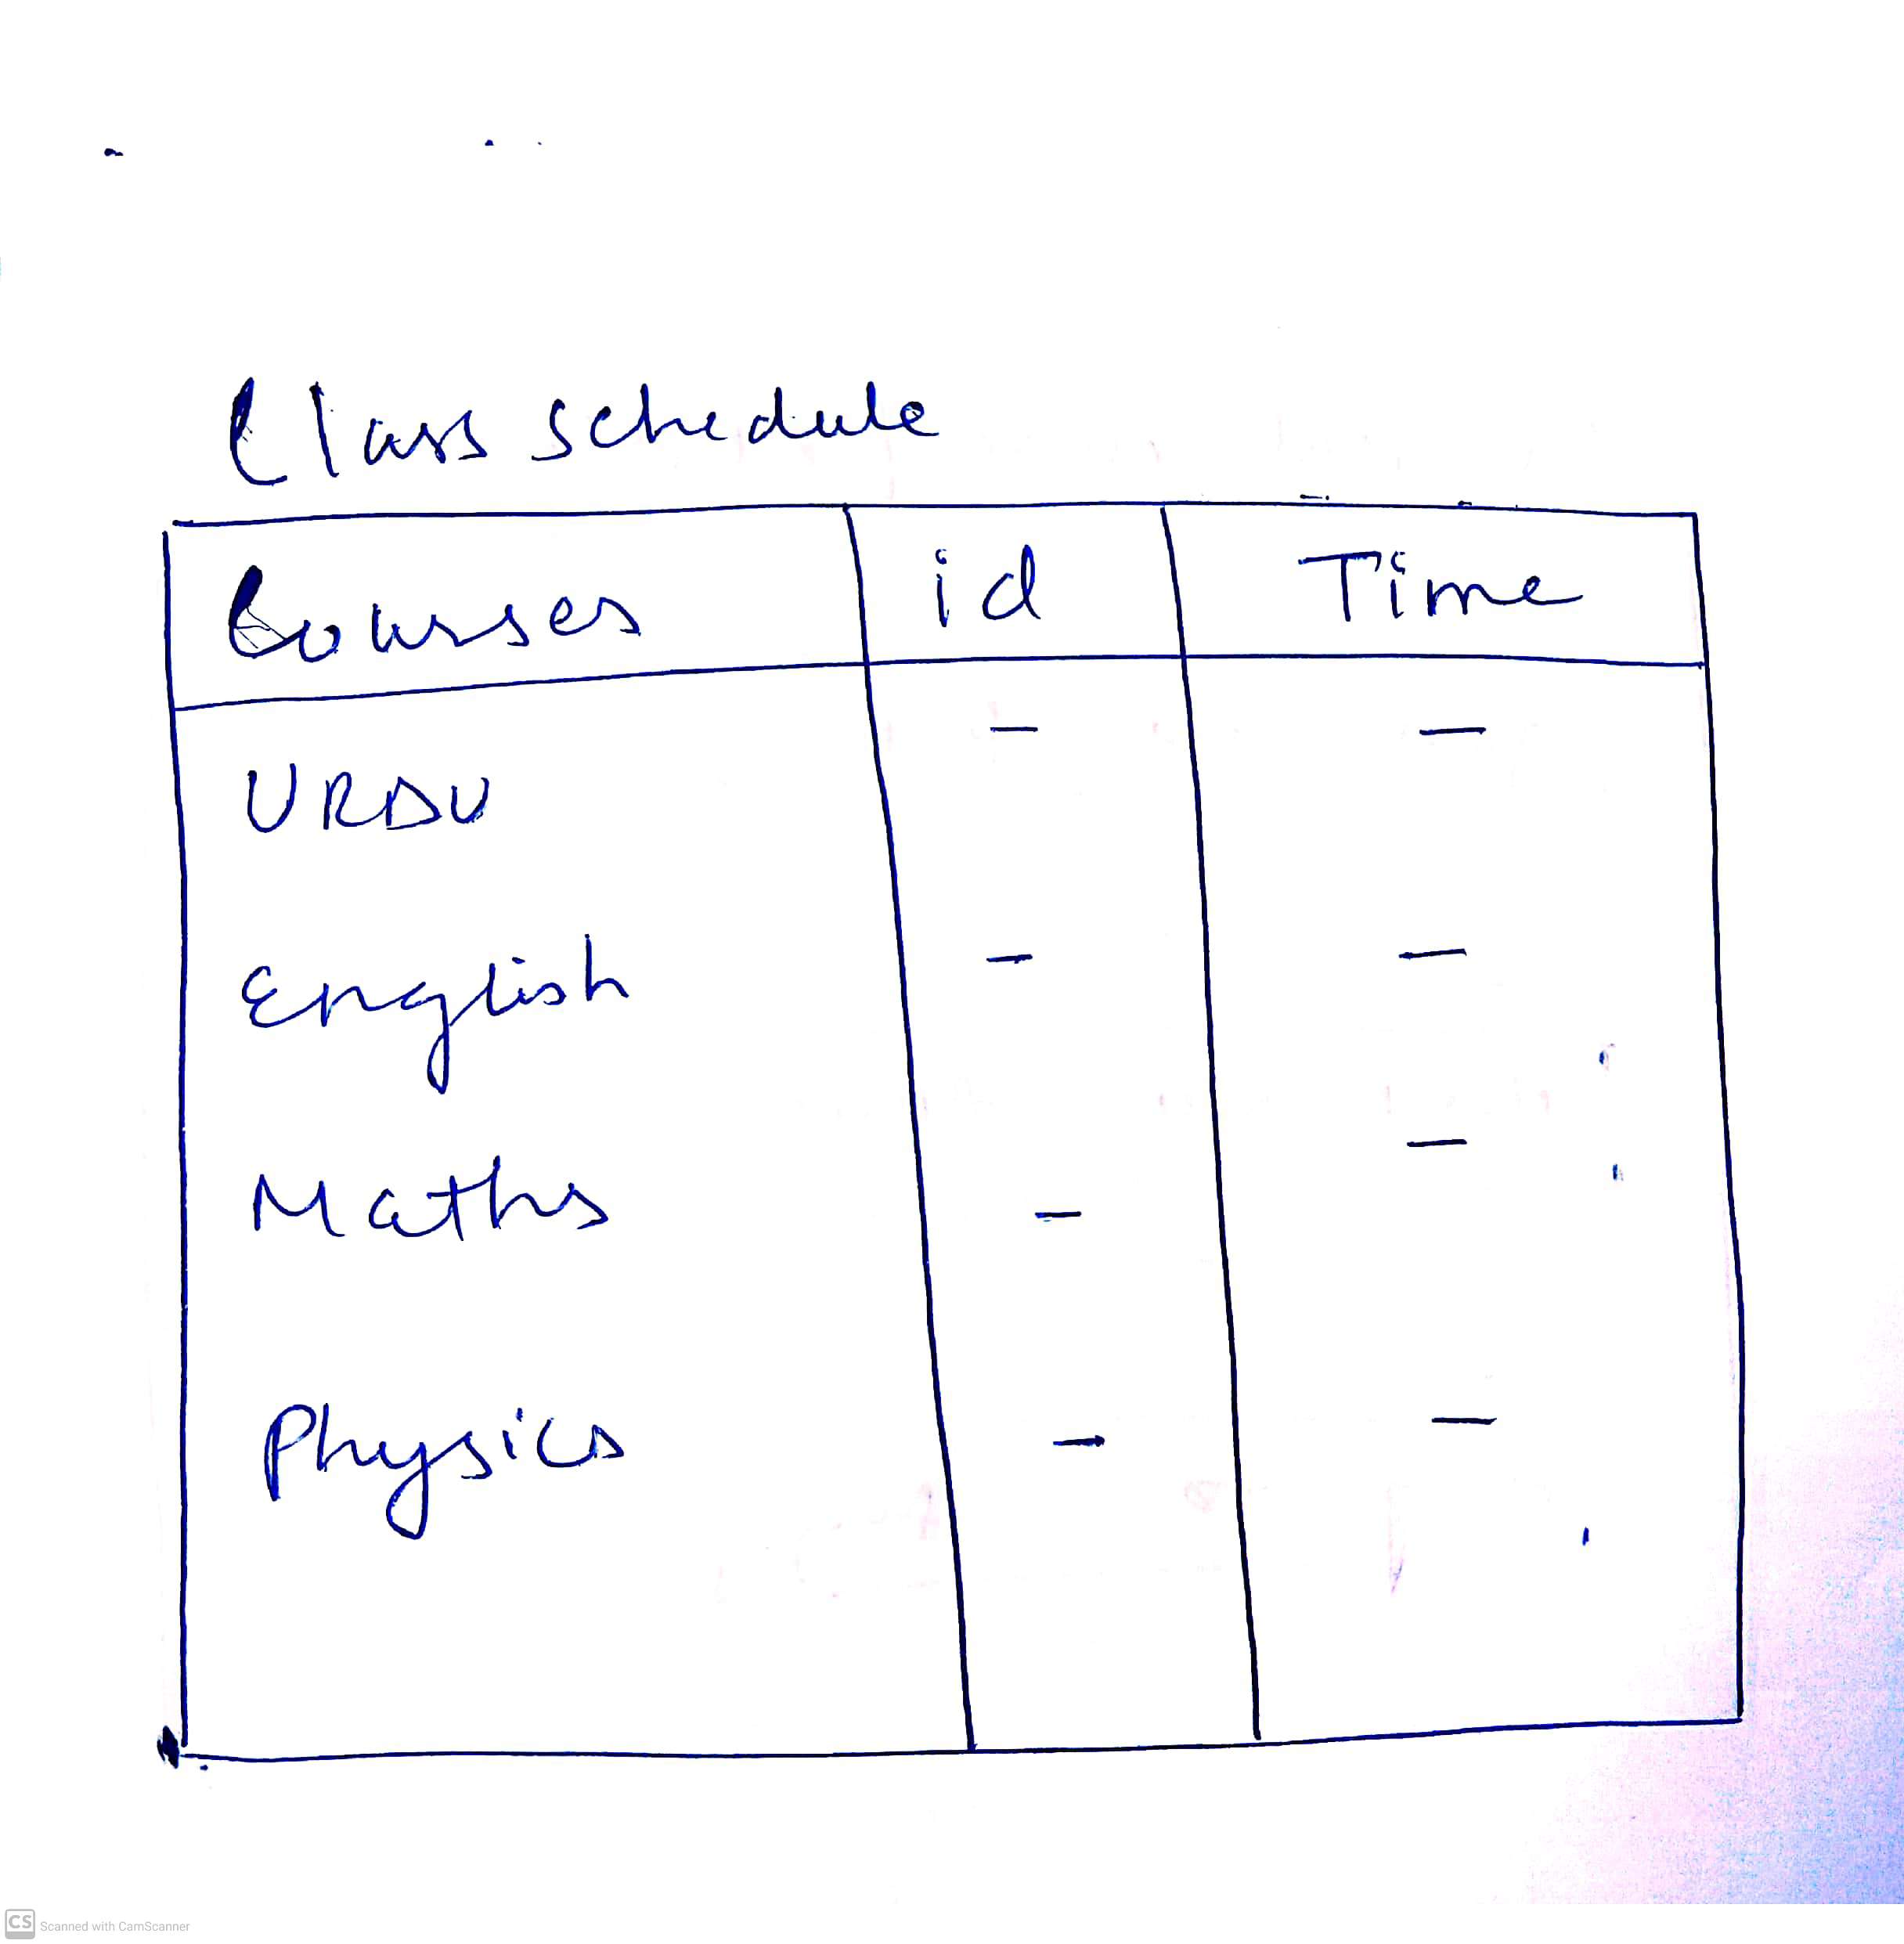 Class schedule
Courses id Time
URDU - -
English - -
Maths - -
Physics - -
CS Scanned with CamScanner